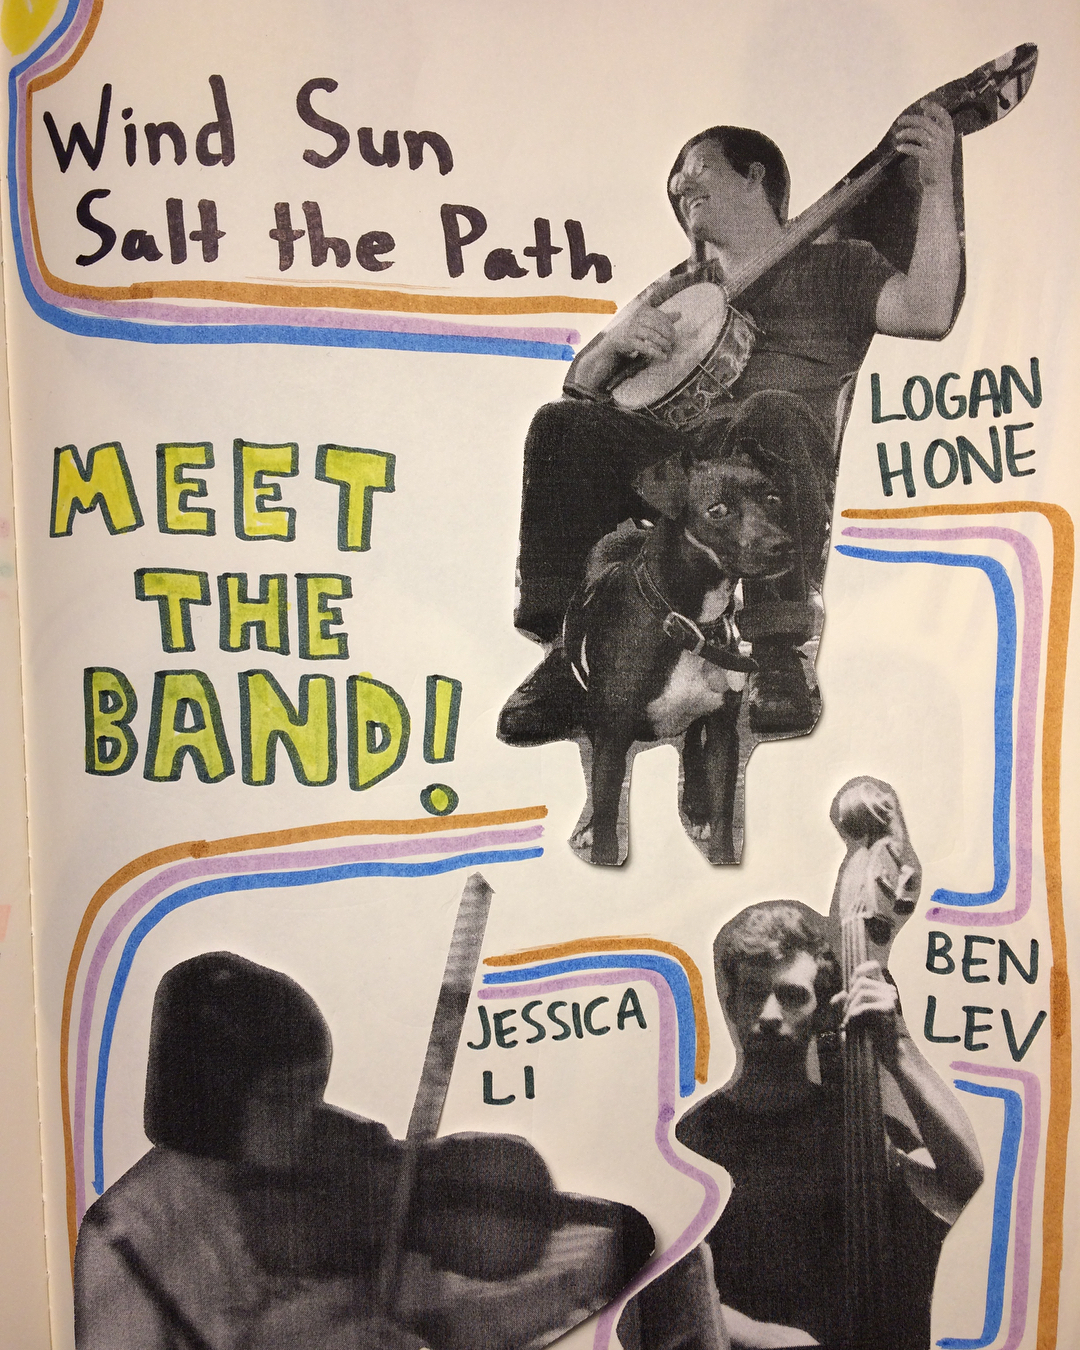 Wind Sun
Salt the Path
MEET
THE
BAND!
LOGAN
HONE
BEN
LEV
JESSICA
LI